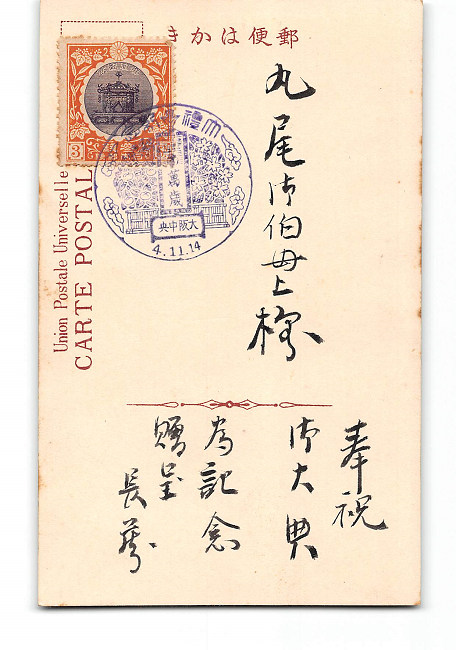 郵便はかき
丸尾御伯母上様
奉祝
御大典
為記念
贈呈
Union Postale Universelle
CARTE POSTAL
3
萬歳
大阪中央
4.11.14